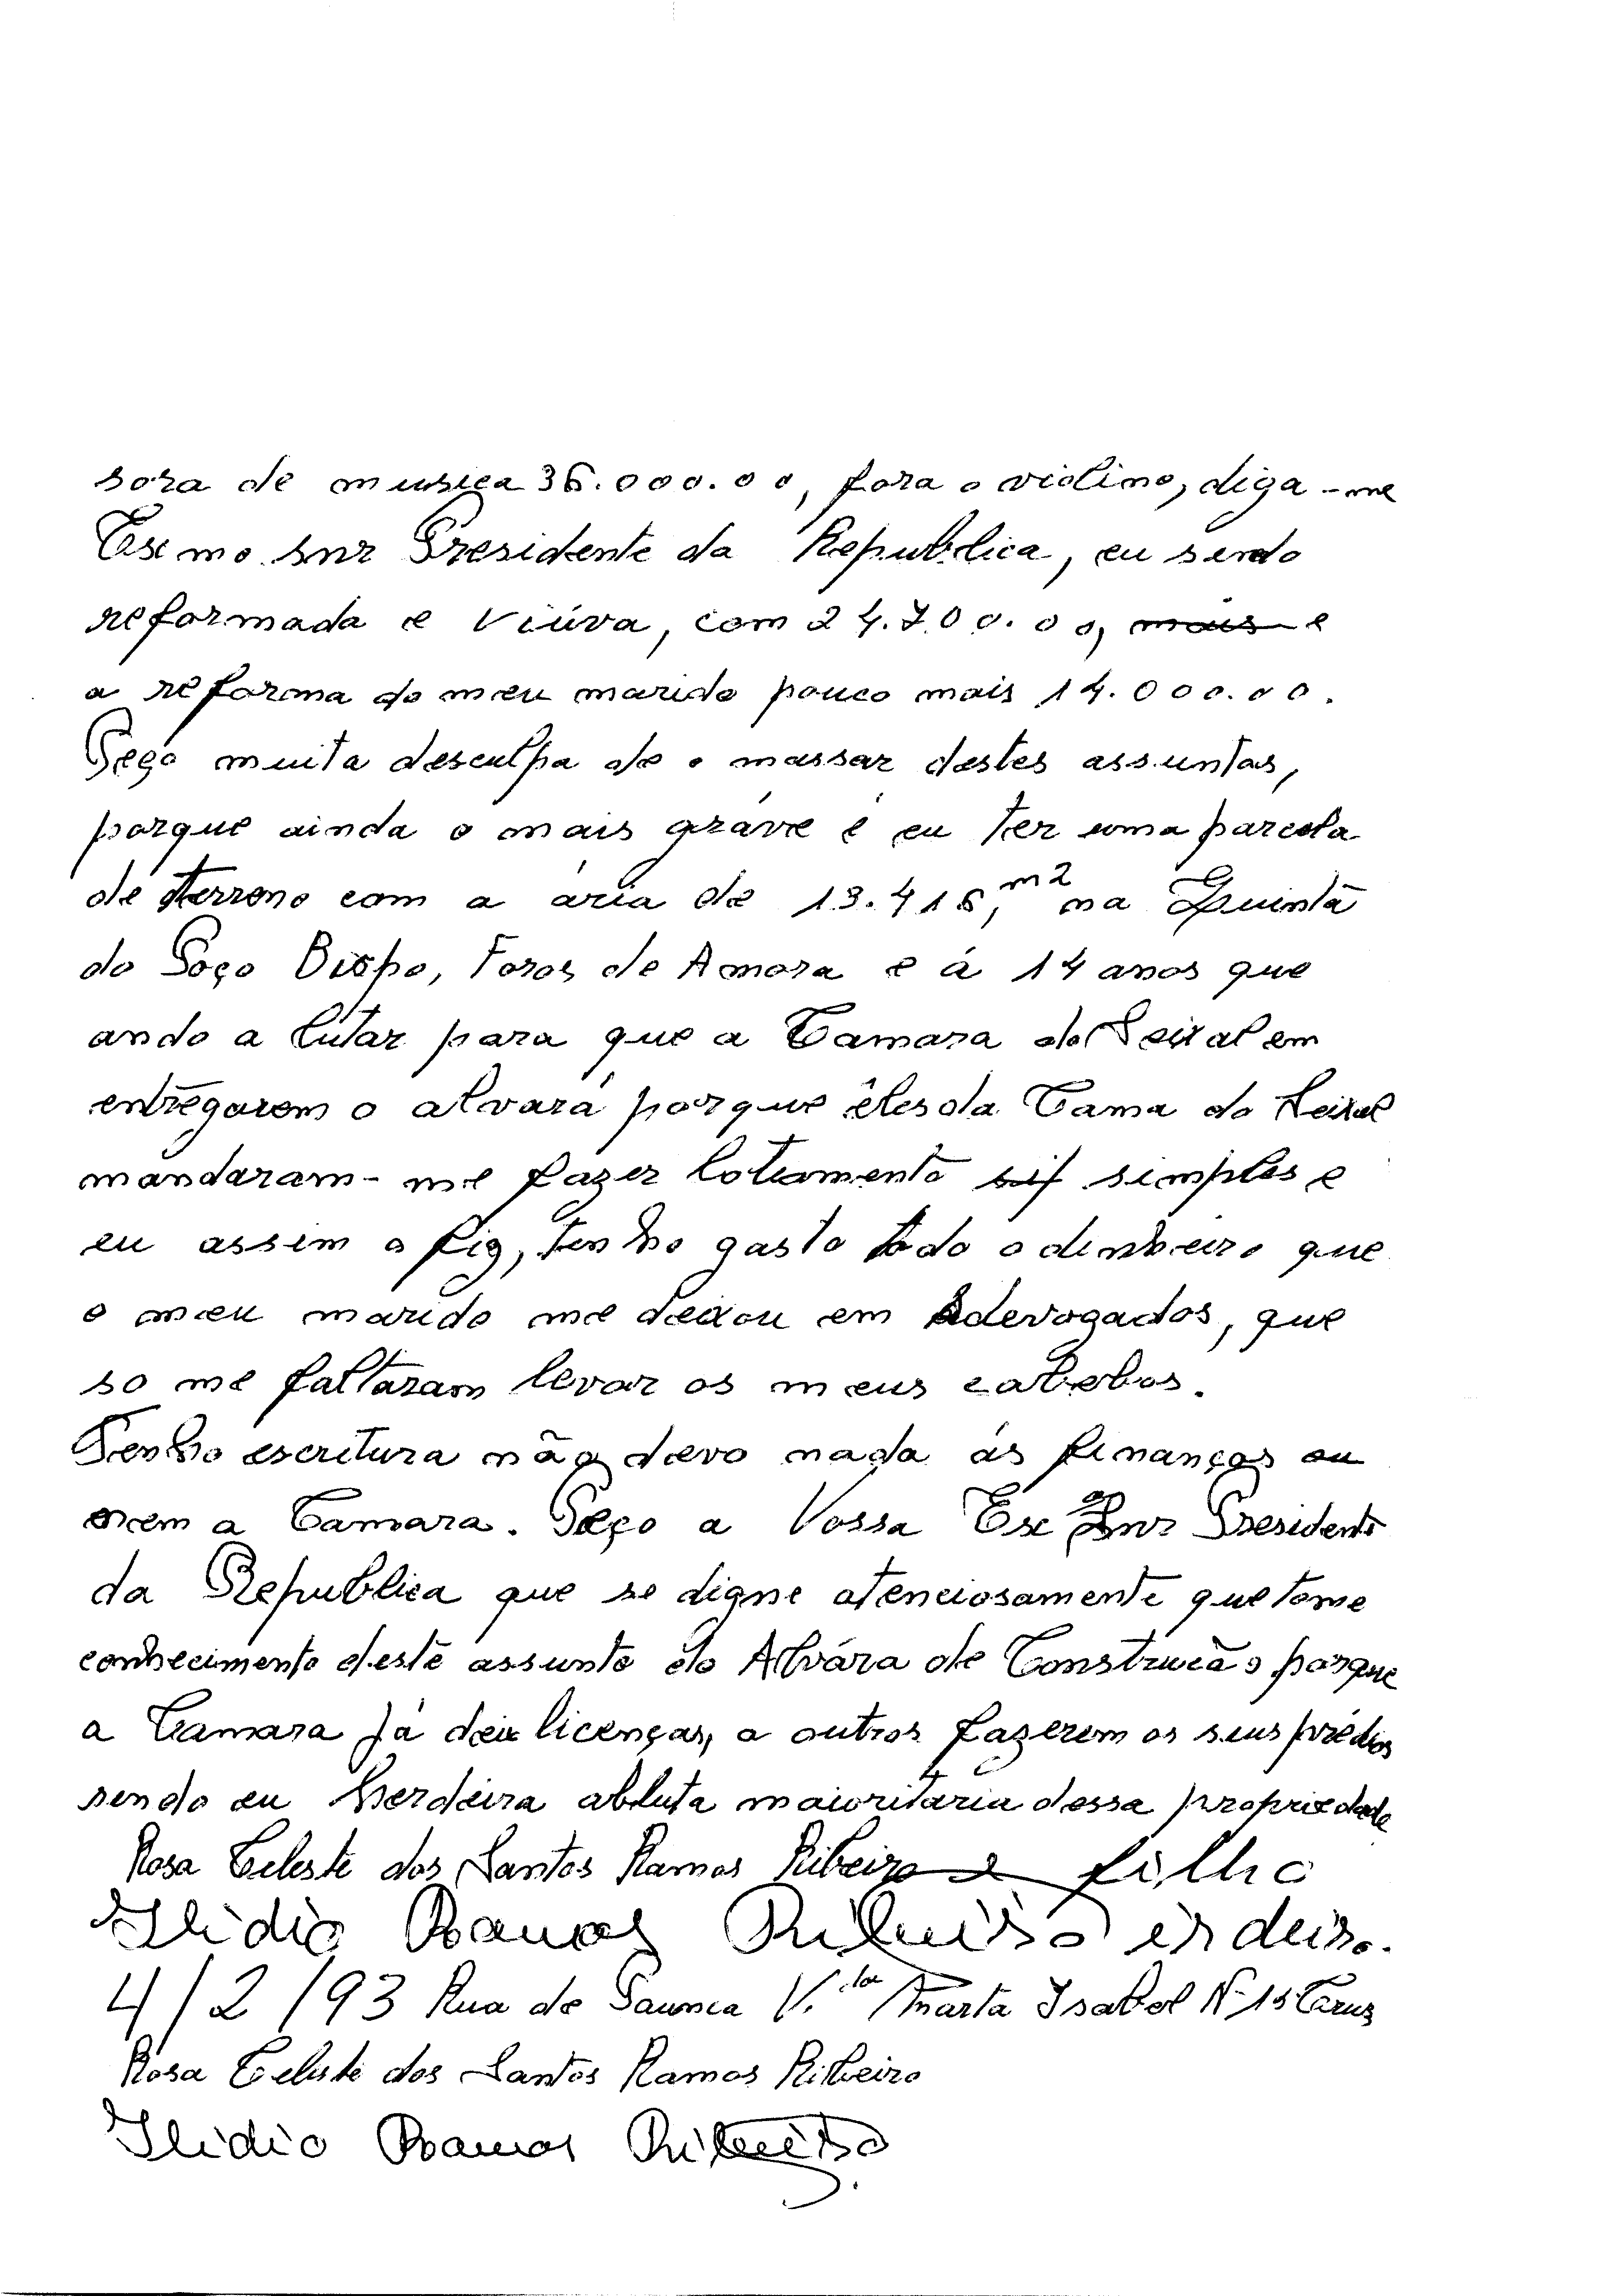 sora de musica 36.000.00, fora o violino, diga-me
Exmo. Snr Presidente da Republica, eu sendo
reformada e Viúva, com 24.700.00, mais e
a reforma do meu marido pouco mais 14.000.00.
Peço muita desculpa de o massar destes assuntos,
porque ainda o mais gráve é eu ter uma parcela
de terreno com a ária de 13.416, m2 na Quinta
do Poço Bispo, Foros de Amora e á 14 anos que
ando a lutar para que a Camara do Seixal em
entregarem o alvará porque êles da Cama do Seixal
mandaram-me fazer loteamento sif simples e
eu assim o fiz, tenho gasto todo o dinheiro que
o meu marido me deixou em Adevogados, que
so me faltaram levar os meus cabelos.
Tenho escritura não devo nada ás finanças ou
nem a Camara. Peço a Vossa Ex Snr Presidente
da Republica que se digne atenciosamente que tome
conhecimento deste assunto do Alvára de Construcão porque
a Camara já deu licenças, a outros fazerem os seus prédios
sendo eu herdeira abluta maioritária dessa propriedade
Rosa Celeste dos Santos Ramos Ribeiro e filho
Ilidio Ramos Ribeiro erdeiro.
4/2/93 Rua de V.la Marta Isabel Nº 15 Cruz
Rosa Celeste dos Santos Ramos Ribeiro
Ilidio Ramos Ribeiro